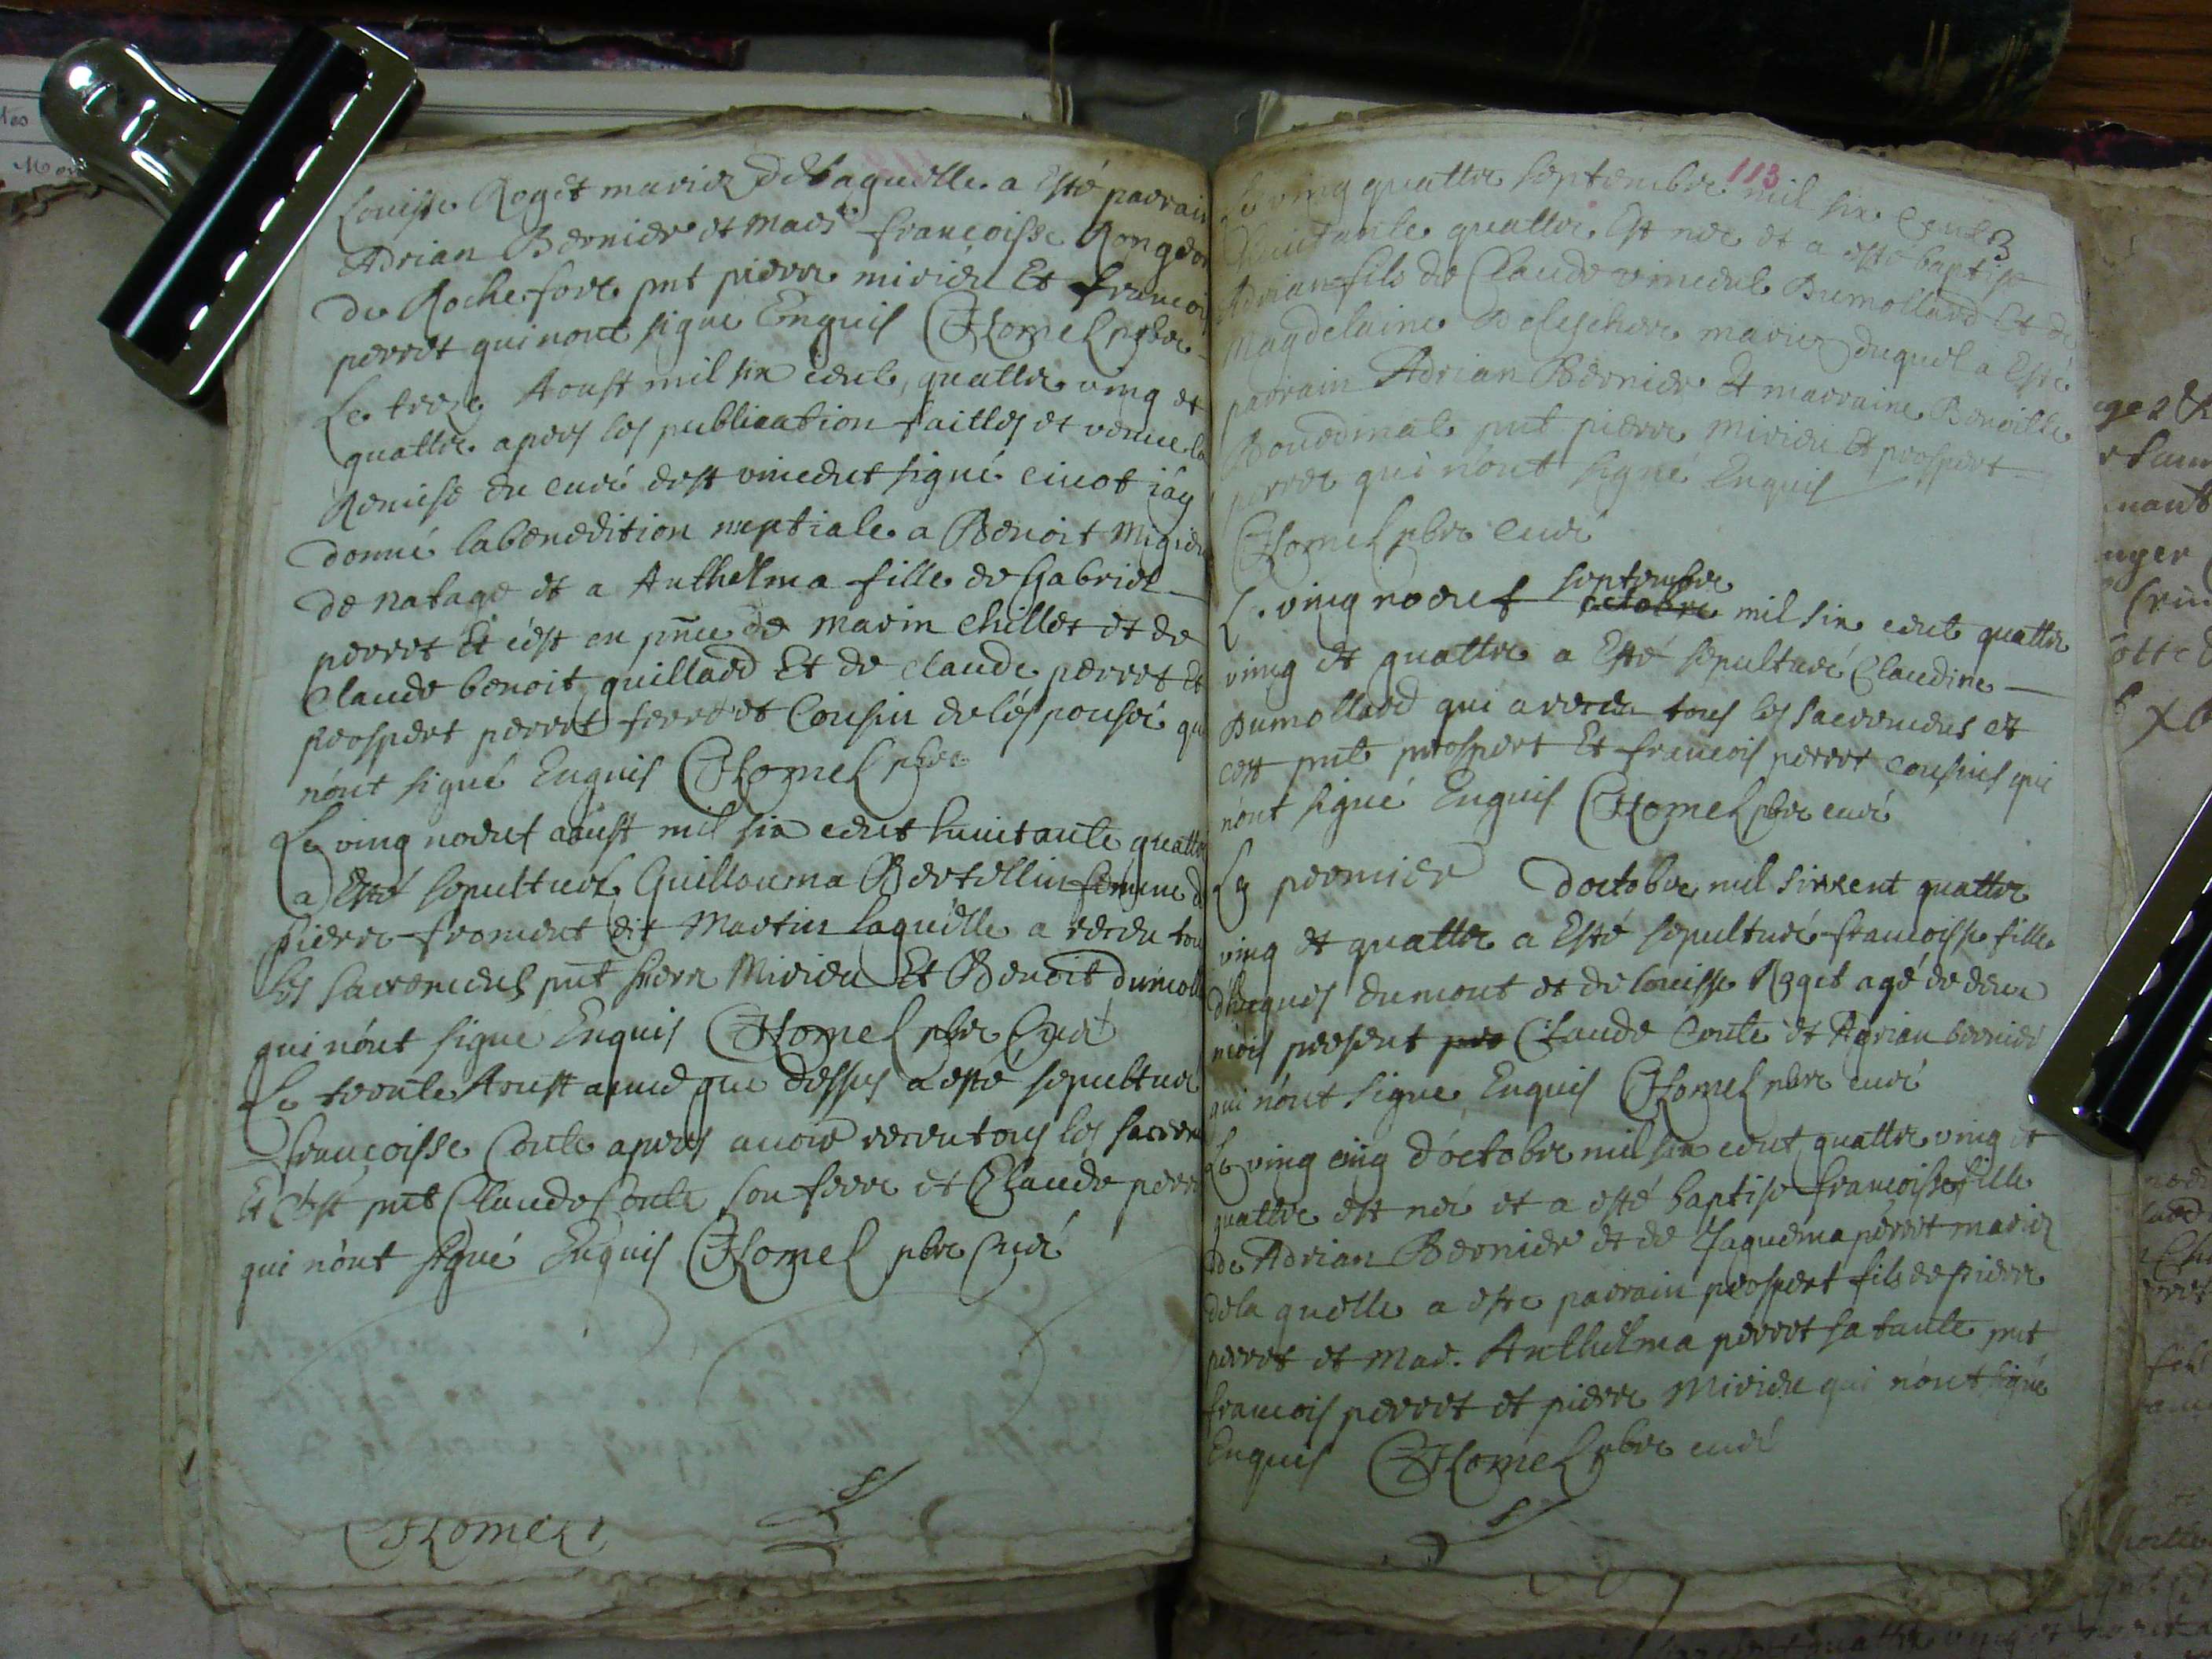 Louisse Roget mariez de laquelle a Esté parrain
Adrian Bernier et Marne francoisse Ronger
de Rochefort pnt pierre mirieu Et francois
perret qui nont signe Enquis CHomel pbre
Le treze Aoust mil six cent, quattre ving et
quattre apres les publication faittes et venue la
Remise du curé dest vincent signé cinot iäy
donné labenedition neptiale a Benoit Migieu
de natage et a Anthelma fille de Gabriel
perret Et cest en pnce de Marin Chillet et de
Claude benoit guillard Et de Claude perret Et
prospert perret ferre et Cousin de léspousée qui
nónt signé Enquis CHomel pbre
Le ving noeuf aoust mil six cent huittante quattre
a Esté sepulturé Guillouma Bertellin femme d
pierre froment dit Martin laquélle a receu tou
les sacrements pnt pierre Mirieu Et Benoit dumoll
qui nónt signe Enquis CHomel pbre Curé
Le trente Aoust anné que dessus a esté sepulturé
francoisse Conte apres avoir receu tous les sacrem
Et C'est pnt Claude Conte son frere et Claude perr
qui nónt signé Enquis CHomel pbre Curé
CHomel
113
3
Le ving quattre septembre mil six cent
huictante quattre Est née et a esté baptisé
Adrian fils de Claude vincent Dumollard Et de
Magdelaine Delescher mariez duquel a Esté
parrain Adrian Bernier Et marraine Benoitte
pnt pierre mirieu Et prospert
perret qui nónt signé Enquis
CHomel pbre curé
septembre
Le ving noeuf octobre mil six cent quattre
ving et quattre a Esté sepulturé Claudine
Dumollard qui a receu tous les sacremens et
cest pnt prospert Et francois perret cousins qui
nónt signé Enquis CHomel pbre curé
Le premier doctobre mil sixcent quattre
ving et quattre a Esté sepulturé francoisse fille
dhugues dumont et de louisse Roget agé de deux
mois present pre Claude Conte et Adrian bernier
qui nónt signe Enquis CHomel pbre curé
Le ving cinq d'octobre mil six cent quattre ving et
quattre est née et a esté baptise francoisse fille
de Adrian Bernier et de Jaquéma pérret mariez
de la quelle a este parrain prospert fils de pierre
perret et mar. Anthelma perret sa tante pnt
francois perret et pierre Mirieu qui nónt signé
Enquis CHomel pbre curé